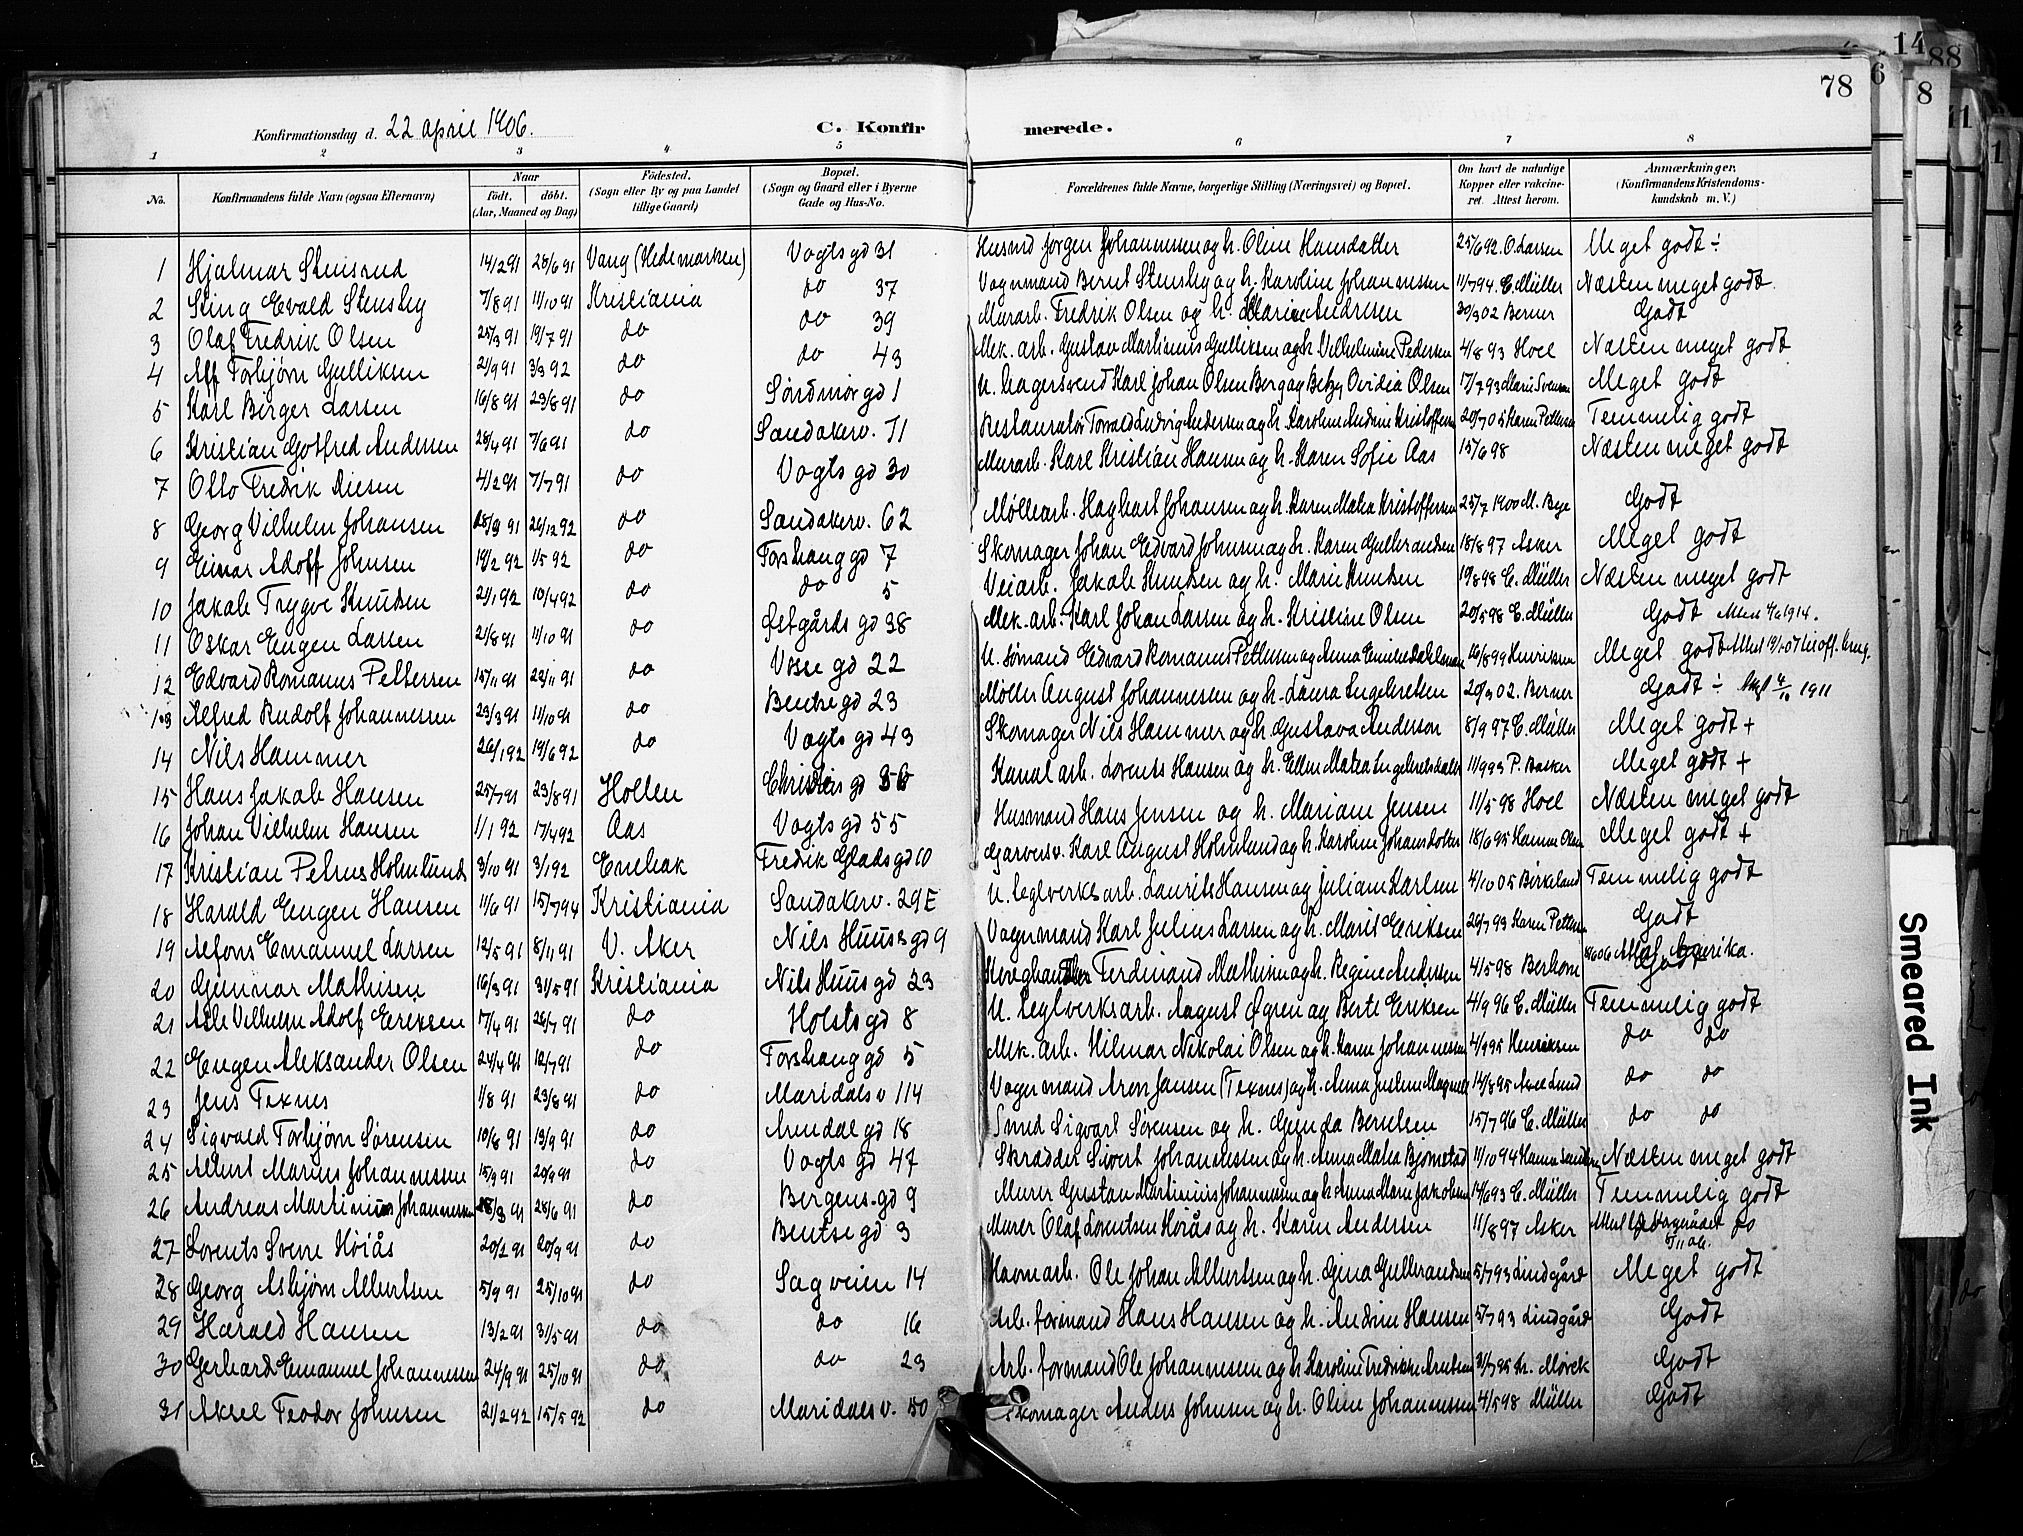 14
88
78
6
8
11
1
Konfirmationsdag d. 22 april 1906.
C. Konfirmerede.
1 2 3 4 5 6 7 8
No.
Konfirmandens fulde Navn (ogsaa Efternavn)
Naar
födt. döbt.
(Aar, Maaned og Dag)
Födested.
(Sogn eller By og paa Landet
tillige Gaard)
Bopæl.
(Sogn og Gaard eller i Byerne
Gade og Hus-No.
Forældrenes fulde Navne, borgerlige Stilling (Næringsvei) og Bopæl.
Om havt de naturlige
Kopper eller vakcine-
ret. Attest herom.
Anmærkninger.
(Konfirmandens Kristendoms-
kundskab m. V.)
1 Hjalmar Stensrud 14/2 91 28/6 91 Vang (Hedemarken) Vogts gd 31 Husmd Jørgen Johannessen og h. Oline Hansdatter 25/6 92. O. Larsen Meget godt ÷
2 Sting Evald Stensby 7/8 91 11/10 91 Kristiania do 37 Vognmand Bernt Stensby og h. Karoline Johannessen 11/7 94. C. Müller Næsten meget godt.
3 Olaf Fredrik Olsen 25/3 91 19/7 91 do do 39 Murarb. Fredrik Olsen og h. Marie Andresen 30/3 02 Berner Godt
4 Alf Torbjørn Gulliksen 21/9 91 3/3 92 do do 43 Mek. arb. Gustav Martinius Gulliksen og h. Vilhelmine Pedersen 4/8 93 Hoel Næsten meget godt
5 Karl Birger Larsen 16/8 91 23/8 91 do Søndmør gd 1 U. bagersvend Karl Johan Olsen Berg og Betzy Ovidia Olsen 17/7 93 Marie Svensen Meget godt
6 Kristian Gotfred Andersen 28/4 91 7/6 91 do Sandakerv. 71 Restauratør Torvald Ludvig Andersen og h. Karoline Andrine Kristoffersen 20/7 05 Karen Pettersen Temmelig godt
7 Otto Fredrik 4/2 91 7/7 91 do Vogts gd 30 Murarb. Karl Kristian Hansen og h. Karen Sofie Aas 15/6 98 Næsten meget godt
8 Georg Vilhelm Johansen 18/9 91 26/12 92 do Sandakerv. 62 Møllearb. Hagbart Johansen og h. Karen Matea Kristoffersen 25/7 1900 M. Bye Godt
9 Einar Adolf Johnsen 19/2 92 1/5 92 do Forshaug gd 7 Skomager Johan Edvard Johnsen og h. Karen Gulbrandsen 18/8 97 Asker Meget godt
10 Jakob Trygve Knudsen 21/1 92 10/4 92 do do 5 Veiarb. Jakob Knudsen og h. Marie Knudsen 10/8 98 C. Müller Næsten meget godt
11 Oskar Eugen Larsen 21/8 91 11/10 91 do Østgårds gd 38 Mek. arb. Karl Johan Larsen og h. Kristine Olsen 20/5 98 C. Müller Godt 1914.
12 Edvard Romanus Pettersen 15/11 91 22/11 91 do Vosse gd 22 U. Sømand Edvard Romanus Pettersen og Anna Emilie Dahlman 16/8 99 Henriksen Meget godt
13 Alfred Rudolf Johannessen 23/3 91 11/10 91 do Bentse gd 23 Møller August Johannesen og h. Laura Engebretsen 20/3 02. Berner Godt ÷ 1911
14 Nils Hammer 26/1 92 19/6 92 do Vogts gd 43 Skomager Nils Hammer og h. Gustava Anderson 8/9 97 C. Müller Meget godt +
15 Hans Jakob Hansen 25/7 91 23/8 91 Hollen Christies gd 36 Kanal arb. Lorents Hansen og h. Ellen Matea Engebretsdatter 11/9 93 P. Basker Meget godt +
16 Johan Vilhelm Hansen 1/1 92 17/4 92 Aas Vogts gd 55 Husmand Hans Jensen og h. Mariane Jensen 11/5 98 Hoel Næsten meget godt
17 Kristian Petrus Holmlund 3/10 91 3/1 92 Enebak Fredrik Glads gd 10 Garversv. Karl August Holmlund og h. Karoline Johansdotter 18/6 95 Hanna Olsen Meget godt +
18 Harald Eugen Hansen 11/6 91 15/7 94 Kristiania Sandakerv. 29E U. teglverksarb. Laurits Hansen og Juliane Karlsen 4/10 05 Birkeland Temmelig godt
19 Alfons Emanuel Larsen 12/5 91 8/11 91 V. Aker Nils Huus gd 9 Vognmand Karl Julius Larsen og h. Marit Eriksen 29/7 93 Karen Pettersen Godt
20 Gunnar Mathisen 16/3 91 31/5 91 Kristiania Nils Huus gd 23 Ferdinand Mathisen og h. Regine Andersen 4/5 98 Berkom Godt Amerika.
21 Atle Vilhelm Adolf Eriksen 17/4 91 26/7 91 do Holsts gd 8 U. Teglverksarb. August Øgren og Berte Eriksen 4/9 96 C. Müller Temmelig godt
22 Eugen Aleksander Olsen 24/4 91 12/7 91 do Forshaug gd 5 Mek. arb. Hilmar Nikolai Olsen og h. Karen Johannessen 4/9 95 Henriksen do do
23 Jens Texnes 1/8 91 23/8 91 do Maridals v 114 Vognmand Aron Jansen (Texnes) og h. Anna Justine 14/8 95 Axel Lund do do
24 Sigvald Torbjørn Sørensen 10/8 91 13/9 91 do Arendal gd 18 Smed Sigvart Sørensen og h. Gunda Berntsen 15/7 96 C. Müller do do
25 Albert Marius Johannessen 15/3 91 20/9 91 do Vogts gd 47 Skrædder Sivert Johannessen og h. Anna Matea Bjørnstad 11/10 94 Hanna Næsten meget godt
26 Andreas Martinius Johannessen 28/3 91 28/6 91 do Bergens gd 9 Murer Gustav Martinius Johannessen og h. Anna Marie Jakobsen 14/6 93 C. Müller Temmelig godt
27 Lorents Sverre Höiås 20/2 91 20/9 91 do Bentse gd 3 Murer Olaf Lorentsen Höiås og h. Karen Andersen 11/8 97 Asker do
28 Georg Asbjørn Albertsen 5/9 91 25/10 91 do Sagveien 14 Havnarb. Ole Johan Albertsen og h. Gina Gulbrandsen 5/7 93 Lindgård Meget godt
29 Harald Hansen 13/2 91 31/5 91 do do 16 Arb. formand Hans Hansen og h. Andrine Hansen 5/7 93 Lindgård Godt
30 Gerhard Emanuel Johannessen 24/9 91 25/10 91 do do 23 Arb. formand Ole Johannessen og h. Karoline Fredrikke Arntsen 31/7 95 Kr. Mørck Godt
31 Aksel Teodor Johnsen 21/2 92 15/5 92 do Maridals v. 150 Skomager Anders Johnsen og h. Oline Johannessen 4/5 98 Müller Godt
Smeared Ink